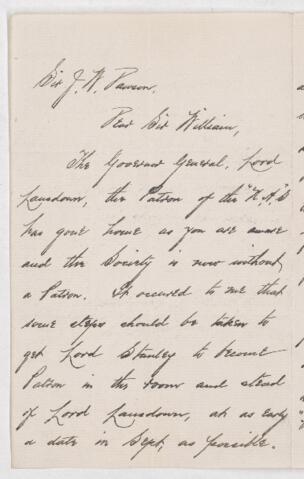 Sir J. W. Dawson.
Dear Sir William,
The Governor General, Lord
Lansdown, the Patron of the "N.H.S
has gone home as you are aware
and the Society is now without
a Patron. It occured to me that
some steps should be taken to
get Lord Stanley to become
Patron in the room and stead
of Lord Lansdown, at as early
a date in Sept, as possible.